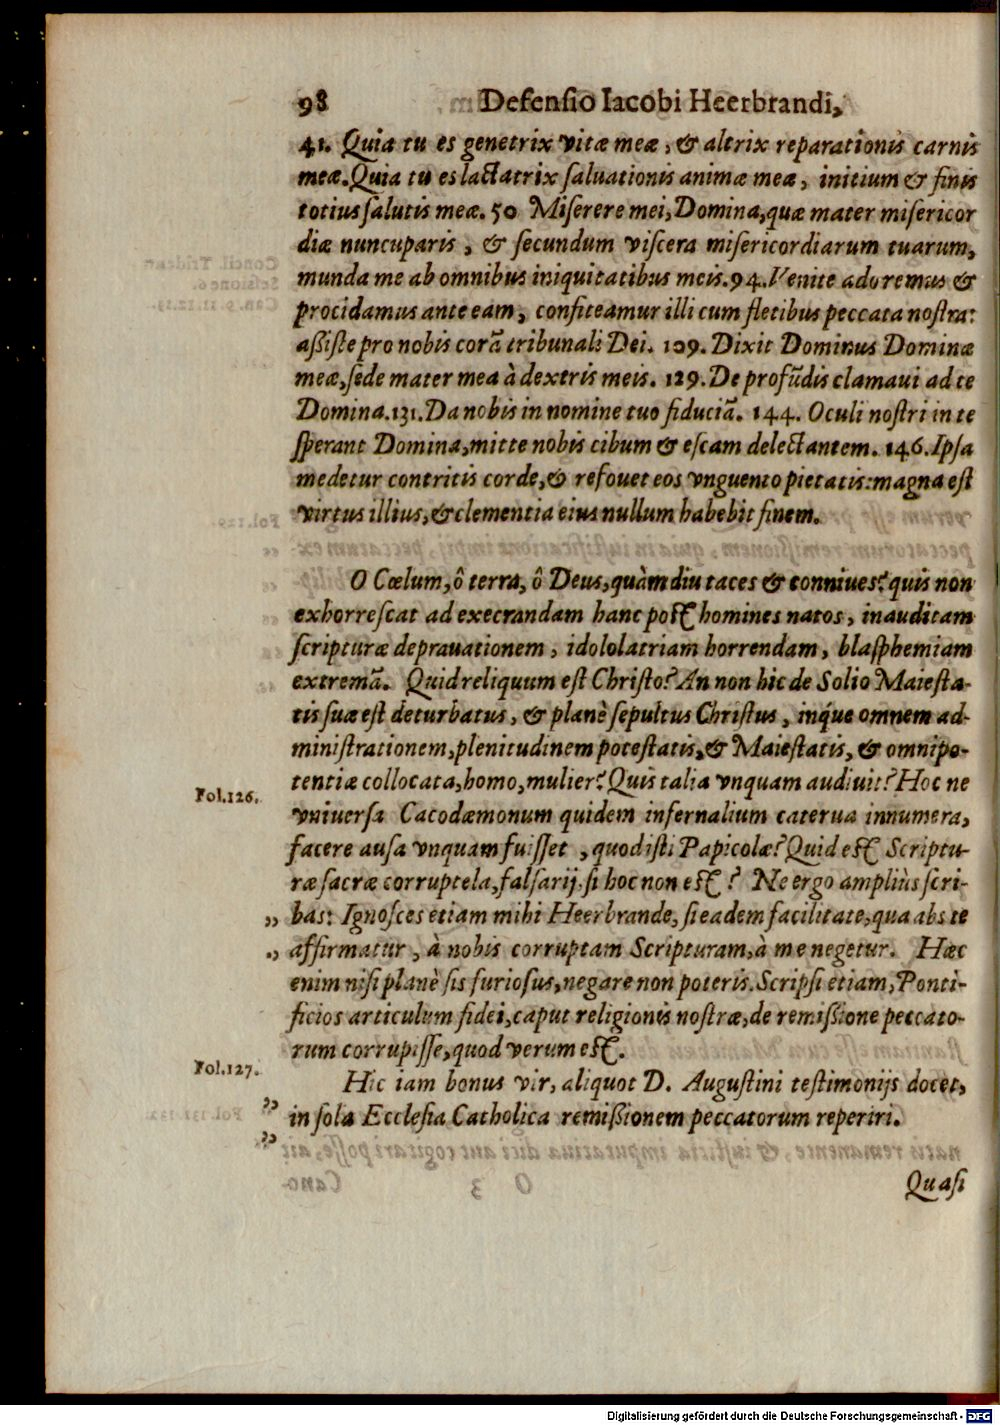 98 Defensio Iacobi Heerbrandi,
41. Quia tu es genetrix vitæ meæ, & altrix reparationis carnis
meæ. Quia tu es lactatrix saluationis animæ meæ, initium & finis
totius salutis meæ. 50 Miserere mei, Domina, quæ mater misericor
diæ nuncuparis, & secundum viscera misericordiarum tuarum,
munda me ab omnibus iniquitatibus meis. 94. Venite adoremus &
procidamus ante eam, confiteamur illi cum fletibus peccata nostra:
aßiste pro nobis corã tribunali Dei. 109. Dixit Dominus Dominæ
meæ, sede mater mea à dextris meis. 129. De profũdis clamaui ad te
Domina. 131. Da nobis in nomine tuo fiduciã. 144. Oculi nostri in te
sperant Domina, mitte nobis cibum & escam delectantem. 146. Ipsa
medetur contritis corde, & refouet eos vnguento pietatis: magna est
virtus illius, & clementia eius nullum habebit finem.
O Cœlum, ô terra, ô Deus, quàm diu taces & conniues? quis non
exhorrescat ad execrandam hanc post homines natos, inauditam
scripturæ deprauationem, idololatriam horrendam, blasphemiam
extremã. Quid reliquum est Christo? An non hic de Solio Maiesta-
tis suæ est deturbatus, & planè sepultus Christus, inq́ue omnem ad-
ministrationem, plenitudinem potestatis, & Maiestatis, & omnipo-
tentiæ collocata, homo, mulier? Quis talia vnquam audiuit? Hoc ne
Fol. 126.
vniuersa Cacodæmonum quidem infernalium caterua innumera,
facere ausa vnquam fuisset, quod isti Papicolæ? Quid est Scriptu-
ræ sacræ corruptela, falsarij. si hoc non est? Ne ergo ampliùs scri-
„ bas: Ignosces etiam mihi Heerbrande, si eadem facilitate, qua abs te
„ affirmatur, à nobis corruptam Scripturam, à me negetur. Hæc
enim nisi planè sis furiosus, negare non poteris. Scripsi etiam, Ponti-
ficios articulum fidei, caput religionis nostræ, de remißione peccato-
rum corrupisse, quod verum est.
Fol. 127.
Hic iam bonus vir, aliquot D. Augustini testimonijs docet,
„ in sola Ecclesia Catholica remißionem peccatorum reperiri.
„
Quasi
Digitalisierung gefördert durch die Deutsche Forschungsgemeinschaft - DFG